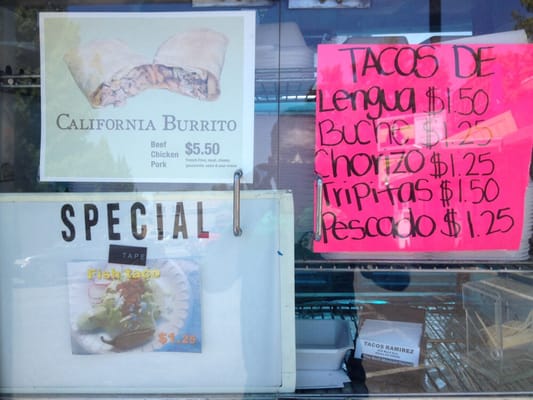 CALIFORNIA BURRITO
Beef
Chicken
Pork
$5.50
SPECIAL
TAPE
Fish taco
TACOS DE
Lengua $1.50
Buche $1.25
Chorizo $1.25
Tripitas $1.50
Pescado $1.25
TACOS RAMIREZ